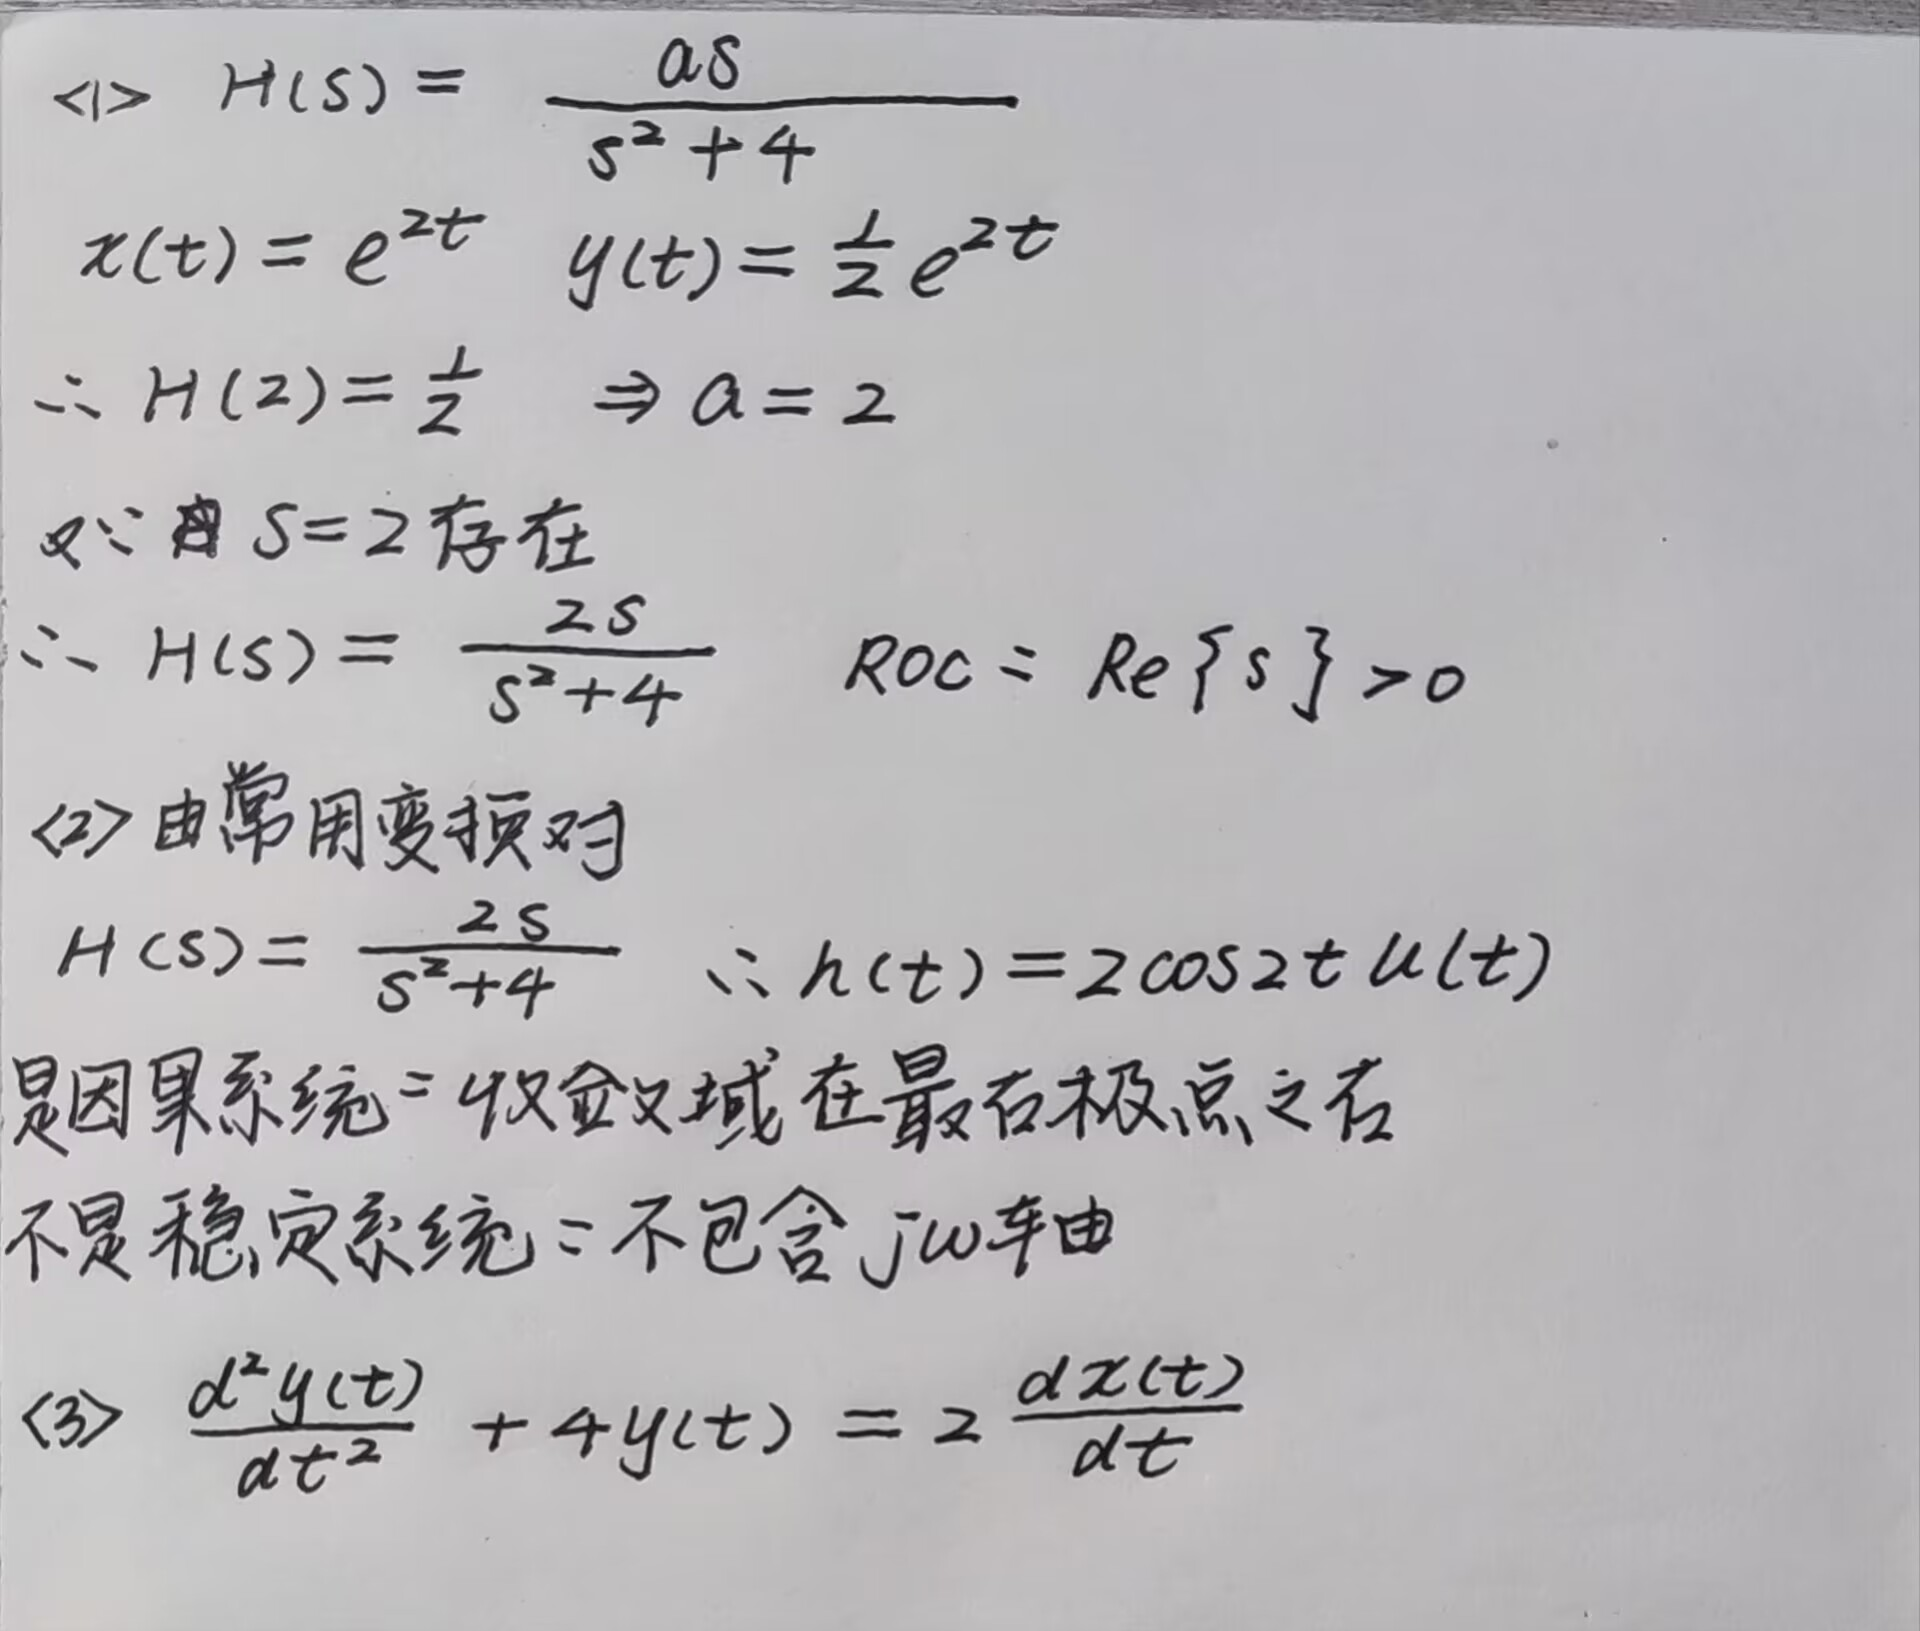 <1> H(s) = as / (s² + 4)
x(t) = e^{2t} y(t) = 1/2 e^{2t}
∴ H(2) = 1/2 ⇒ a = 2
又∵ S=2存在
∴ H(s) = 2s / (s²+4) ROC: Re{s} > 0
<2> 由常用变换对
H(s) = 2s / (s²+4) ∴ h(t) = 2cos2t u(t)
是因果系统：收敛域在最右极点之右
不是稳定系统：不包含jw轴
<3> d²y(t)/dt² + 4y(t) = 2 dx(t)/dt